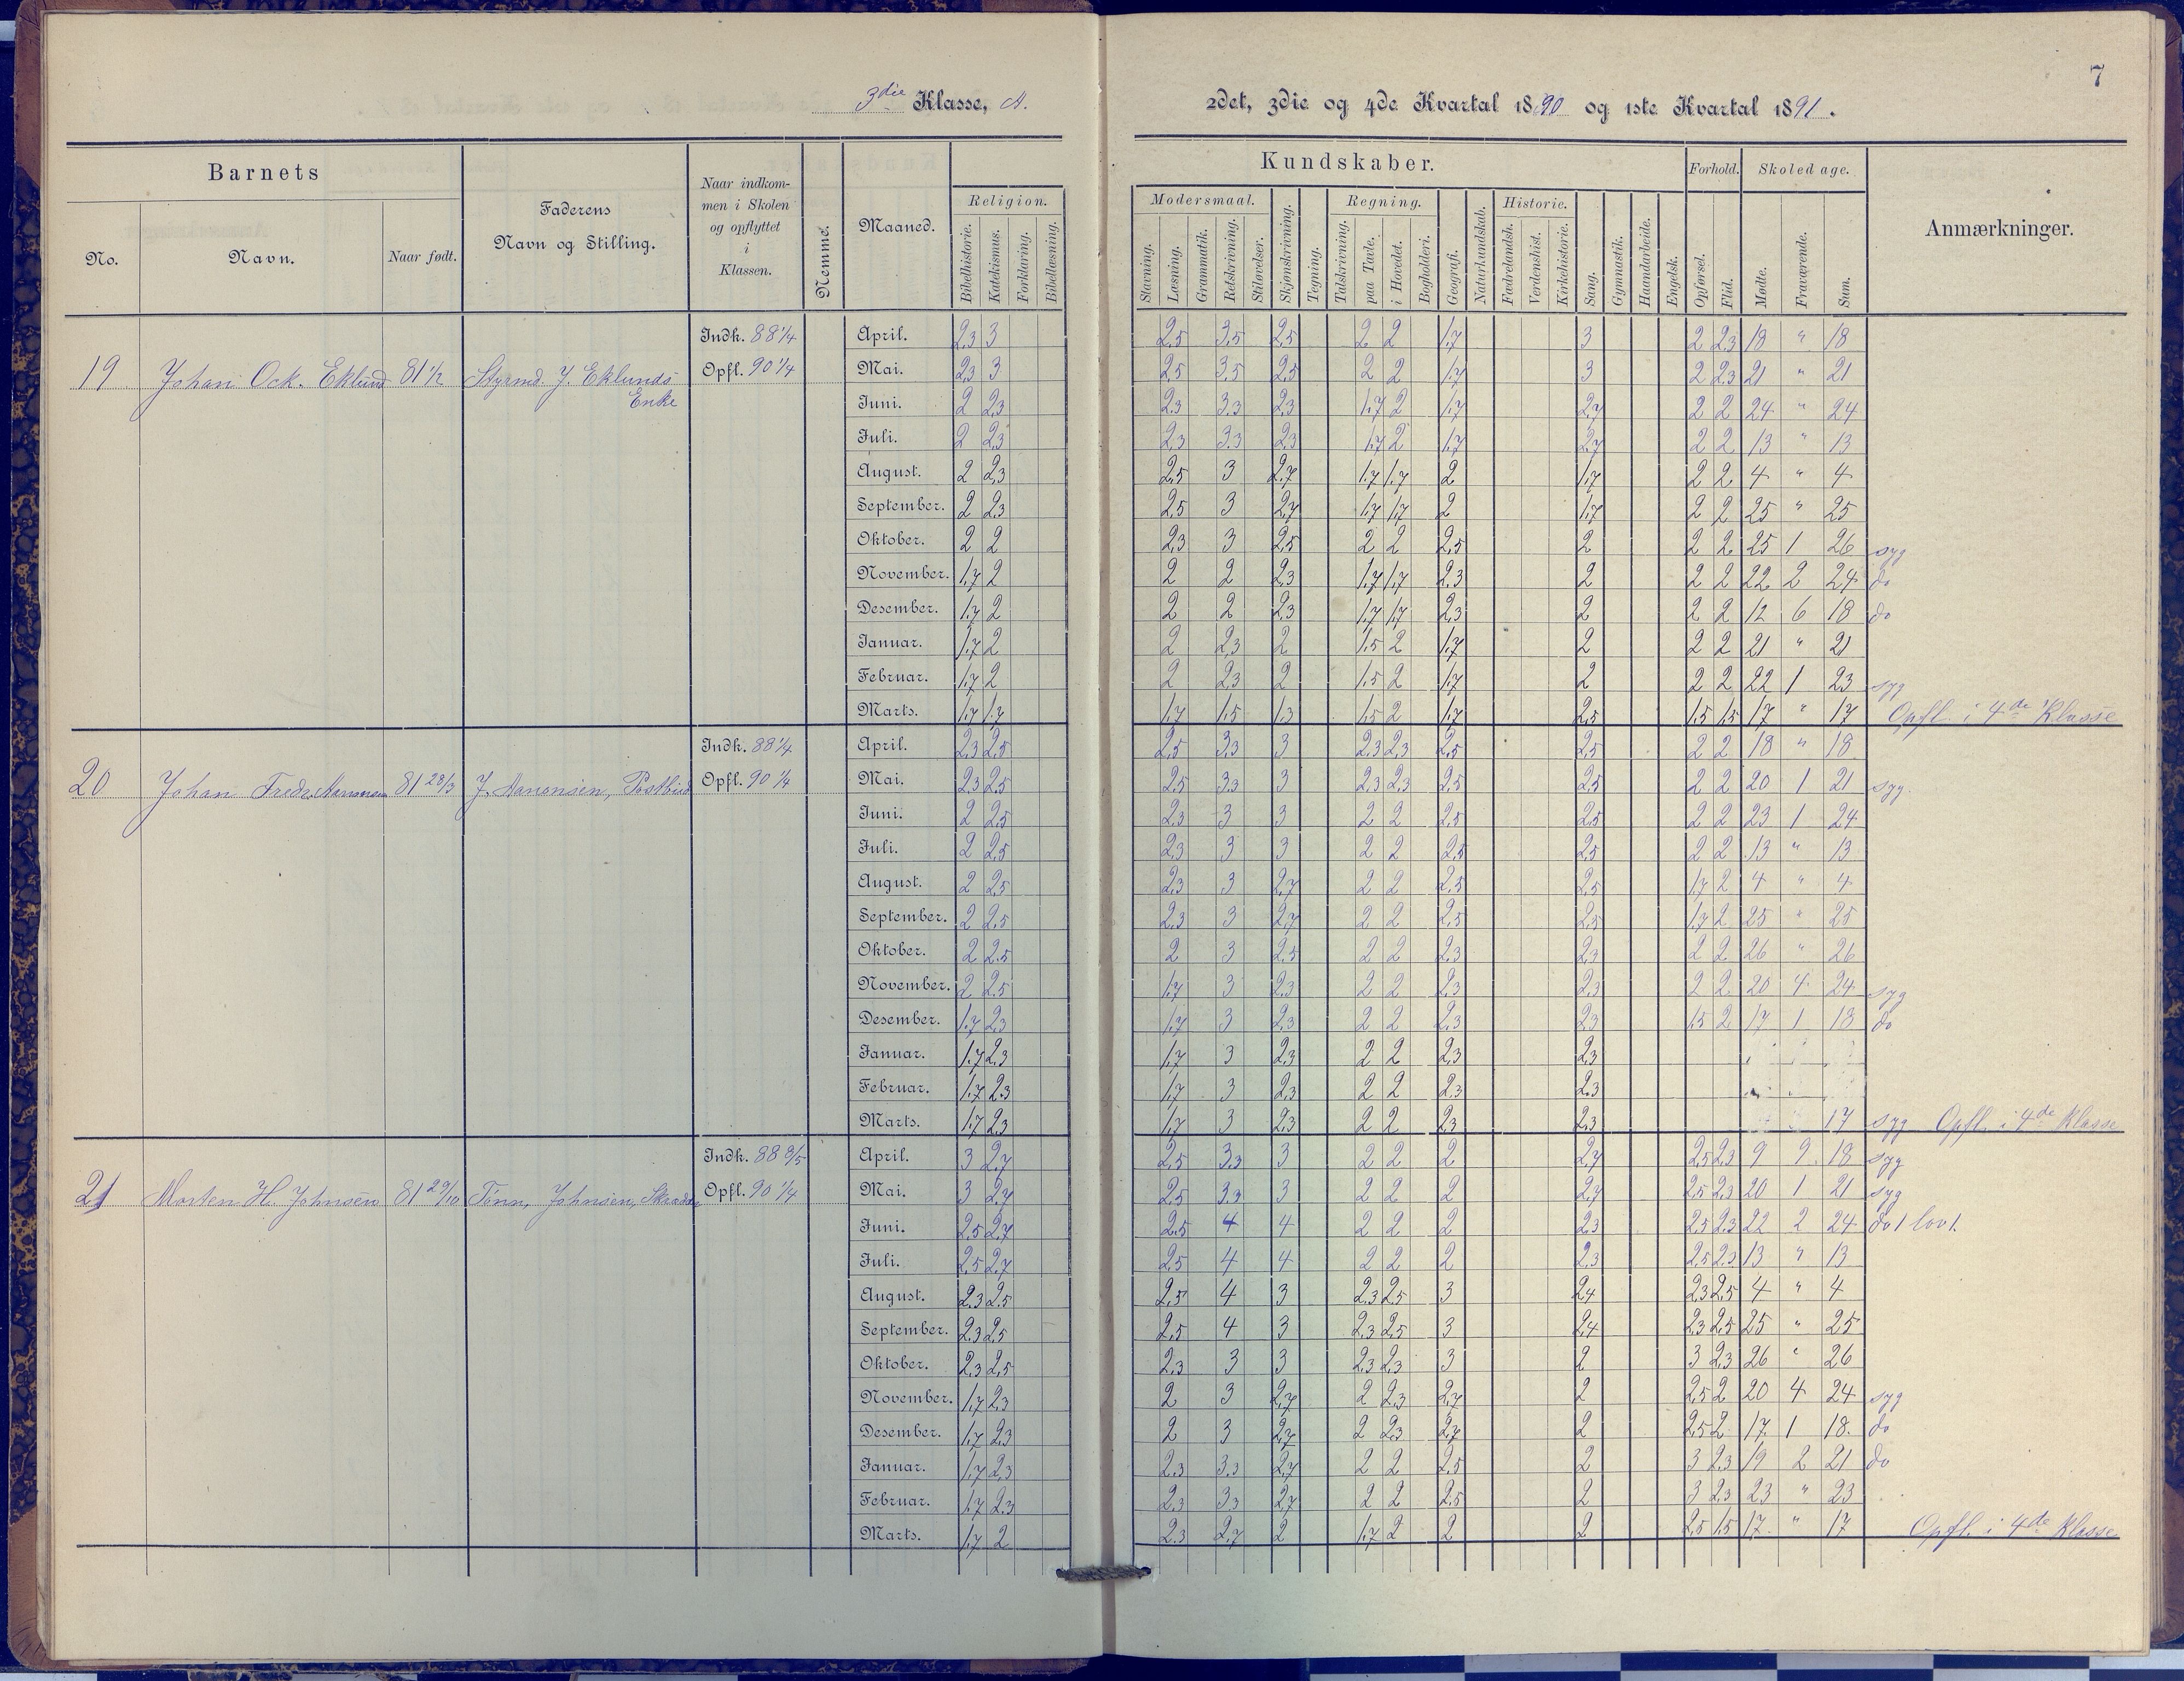 7
3die Klasse, A.
2det, 3die og 4de Kvartal 1890 og 1ste Kvartal 1891.
Barnets
No.
Navn.
Naar født.
Faderens
Navn og Stilling.
Naar indkom-
men i Skolen
og opflyttet
i
Klassen.
Nemme.
Maaned.
Religion.
Bibelhistorie. Katekismus. Forklaring. Bibellæsning.
Kundskaber.
Modersmaal.
Slavning. Læsning. Grammatik. Retskrivning. Stiløvelser.
Skjønskrivning. Tegning.
Regning.
Talskrivning. paa Tavle. i Hovedet. Bogholderi.
Geografi. Naturkundskab.
Historie.
Fædrelandsh. Verdenshist. Kirkehistorie.
Sang. Gymnastik. Haandarbeide. Engelsk.
Forhold.
Opførsel. Flid.
Skoledage.
Mødte. Fraværende. Sum.
Anmærkninger.
19 Johan Ock. Eklund 81 1/2 Styrmd. J. Eklunds
Enke
Indk. 88 1/4
Opfl. 90 1/4
April. 2,3 3 2,5 3,5 2,5 2 2 1,7 3 2 2,3 18 " 18
Mai. 2,3 3 2,5 3,5 2,5 2 2 1,7 3 2 2,3 21 " 21
Juni. 2 2,3 2,3 3,3 2,3 1,7 2 1,7 2,7 2 2 24 " 24
Juli. 2 2,3 2,3 3,3 2,3 1,7 2 1,7 2,7 2 2 13 " 13
August. 2 2,3 2,5 3 2,7 1,7 1,7 2 1,7 2 2 4 " 4
September. 2 2,3 2,5 3 2,7 1,7 1,7 2 1,7 2 2 25 " 25
Oktober. 2 2 2,3 3 2,5 2 2 2,5 2 2 2 25 1 26 syg
November. 1,7 2 2 2 2,3 1,7 1,7 2,3 2 2 2 22 2 24 do
Desember. 1,7 2 2 2 2,3 1,7 1,7 2,3 2 2 2 12 6 18 do
Januar. 1,7 2 2 2,3 2 1,5 2 1,7 2 2 2 21 " 21
Februar. 1,7 2 2 2,3 2 1,5 2 1,7 2 2 2 22 1 23 syg
Marts. 1,7 1,7 1,7 1,5 1,3 1,5 2 1,7 2,5 1,5 1,5 17 " 17 Opfl. i 4de Klasse
20 Johan Fredr. 81 28/3 J. Postbud
Indk. 88 1/4
Opfl. 90 1/4
April. 2,3 2,5 2,5 3,3 3 2,3 2,3 2,5 2,5 2 2 18 " 18
Mai. 2,3 2,5 2,5 3,3 3 2,3 2,3 2,5 2,5 2 2 20 1 21 syg.
Juni. 2 2,5 2,3 3 3 2 2 2,5 2,5 2 2 23 1 24
Juli. 2 2,5 2,3 3 3 2 2 2,5 2,5 2 2 13 " 13
August. 2 2,5 2,3 3 2,7 2 2 2,5 2,5 1,7 2 4 " 4
September. 2 2,5 2,3 3 2,7 2 2 2,5 2,5 1,7 2 25 " 25
Oktober. 2 2,5 2 3 2,5 2 2 2,3 2,3 2 2 26 " 26
November. 2 2,5 1,7 3 2,3 2 2 2,3 2,3 2 2 20 4 24 syg
Desember. 1,7 2,3 1,7 3 2,3 2 2 2,3 2,3 1,5 2 17 1 18 do
Januar. 1,7 2,3 1,7 3 2,3 2 2 2,3 2,3
Februar. 1,7 2,3 1,7 3 2,3 2 2 2,3 2,3
Marts. 1,7 2,3 1,7 3 2,3 2 2 2,3 2,3 17 syg Opfl. i 4de Klasse
21 Morten H. Johnsen 81 29/10 Tønn. Johnsen,
Indk. 88 9/5
Opfl. 90 1/4
April. 3 2,7 2,5 3,3 3 2 2 2 2,7 2,5 2,3 9 9 18 syg
Mai. 3 2,7 2,5 3,3 3 2 2 2 2,7 2,5 2,3 20 1 21 syg
Juni. 2,5 2,7 2,5 4 4 2 2 2 2,3 2,5 2,3 22 2 24 do 1 lov 1.
Juli. 2,5 2,7 2,5 4 4 2 2 2 2,3 2,5 2,3 13 " 13
August. 2,3 2,5 2,5 4 3 2,3 2,5 3 2,4 2,3 2,5 4 " 4
September. 2,3 2,5 2,5 4 3 2,3 2,5 3 2,4 2,3 2,5 25 " 25
Oktober. 2,3 2,5 2,3 3 3 2,3 2,3 3 2 3 2,3 26 " 26
November. 1,7 2,3 2 3 2,7 2 2,3 2,7 2 2,5 2 20 4 24 syg
Desember. 1,7 2,3 2 3 2,7 2 2,3 2,7 2 2,5 2 17 1 18. do
Januar. 1,7 2,3 2,3 3,3 2,7 2 2 2,5 2 3 2,3 19 2 21 do
Februar. 1,7 2,3 2,3 3,3 2,7 2 2 2,5 2 3 2,3 23 " 23
Marts. 1,7 2 2,3 2,7 2 1,7 2 2 2 2,5 1,5 17. " 17 Opfl. i 4de Klasse